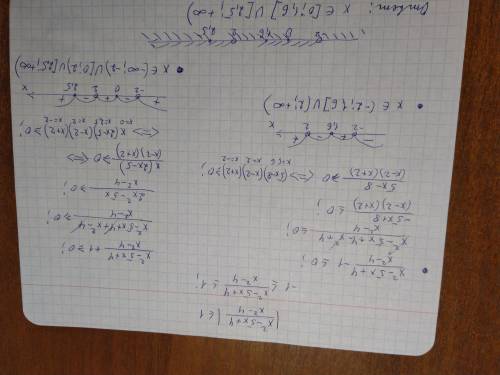 |x²-5x+4 / x²-4| ≤ 1
-1 ≤ x²-5x+4 / x²-4 ≤ 1;
• x²-5x+4 / x²-4 - 1 ≤ 0;
x²-5x+4-x²+4 / x²-4 ≤ 0
-5x+8 / (x-2)(x+2) ≤ 0;
5x-8 / (x-2)(x+2) ≥ 0 <=> (5x-8)(x-2)(x+2) ≥ 0;
x≠2 x≠-2
- + - +
-2 1,6 2 x
• x ∈ (-2; 1,6] ∪ (2; +∞)
x²-5x+4 / x²-4 + 1 ≥ 0;
x²-5x+4+x²-4 / x²-4 ≥ 0;
2x²-5x / x²-4 ≥ 0;
x(2x-5) / (x-2)(x+2) ≥ 0 <=>
<=> x(2x-5)(x-2)(x+2) ≥ 0;
x≠2 x≠-2
+ - + - +
-2 0 2 2,5 x
• x ∈ (-∞; -2) ∪ [0; 2) ∪ [2,5; +∞)
-2 0 1,6 2 2,5
Ответ:
x ∈ [0; 1,6] ∪ [2,5; +∞)